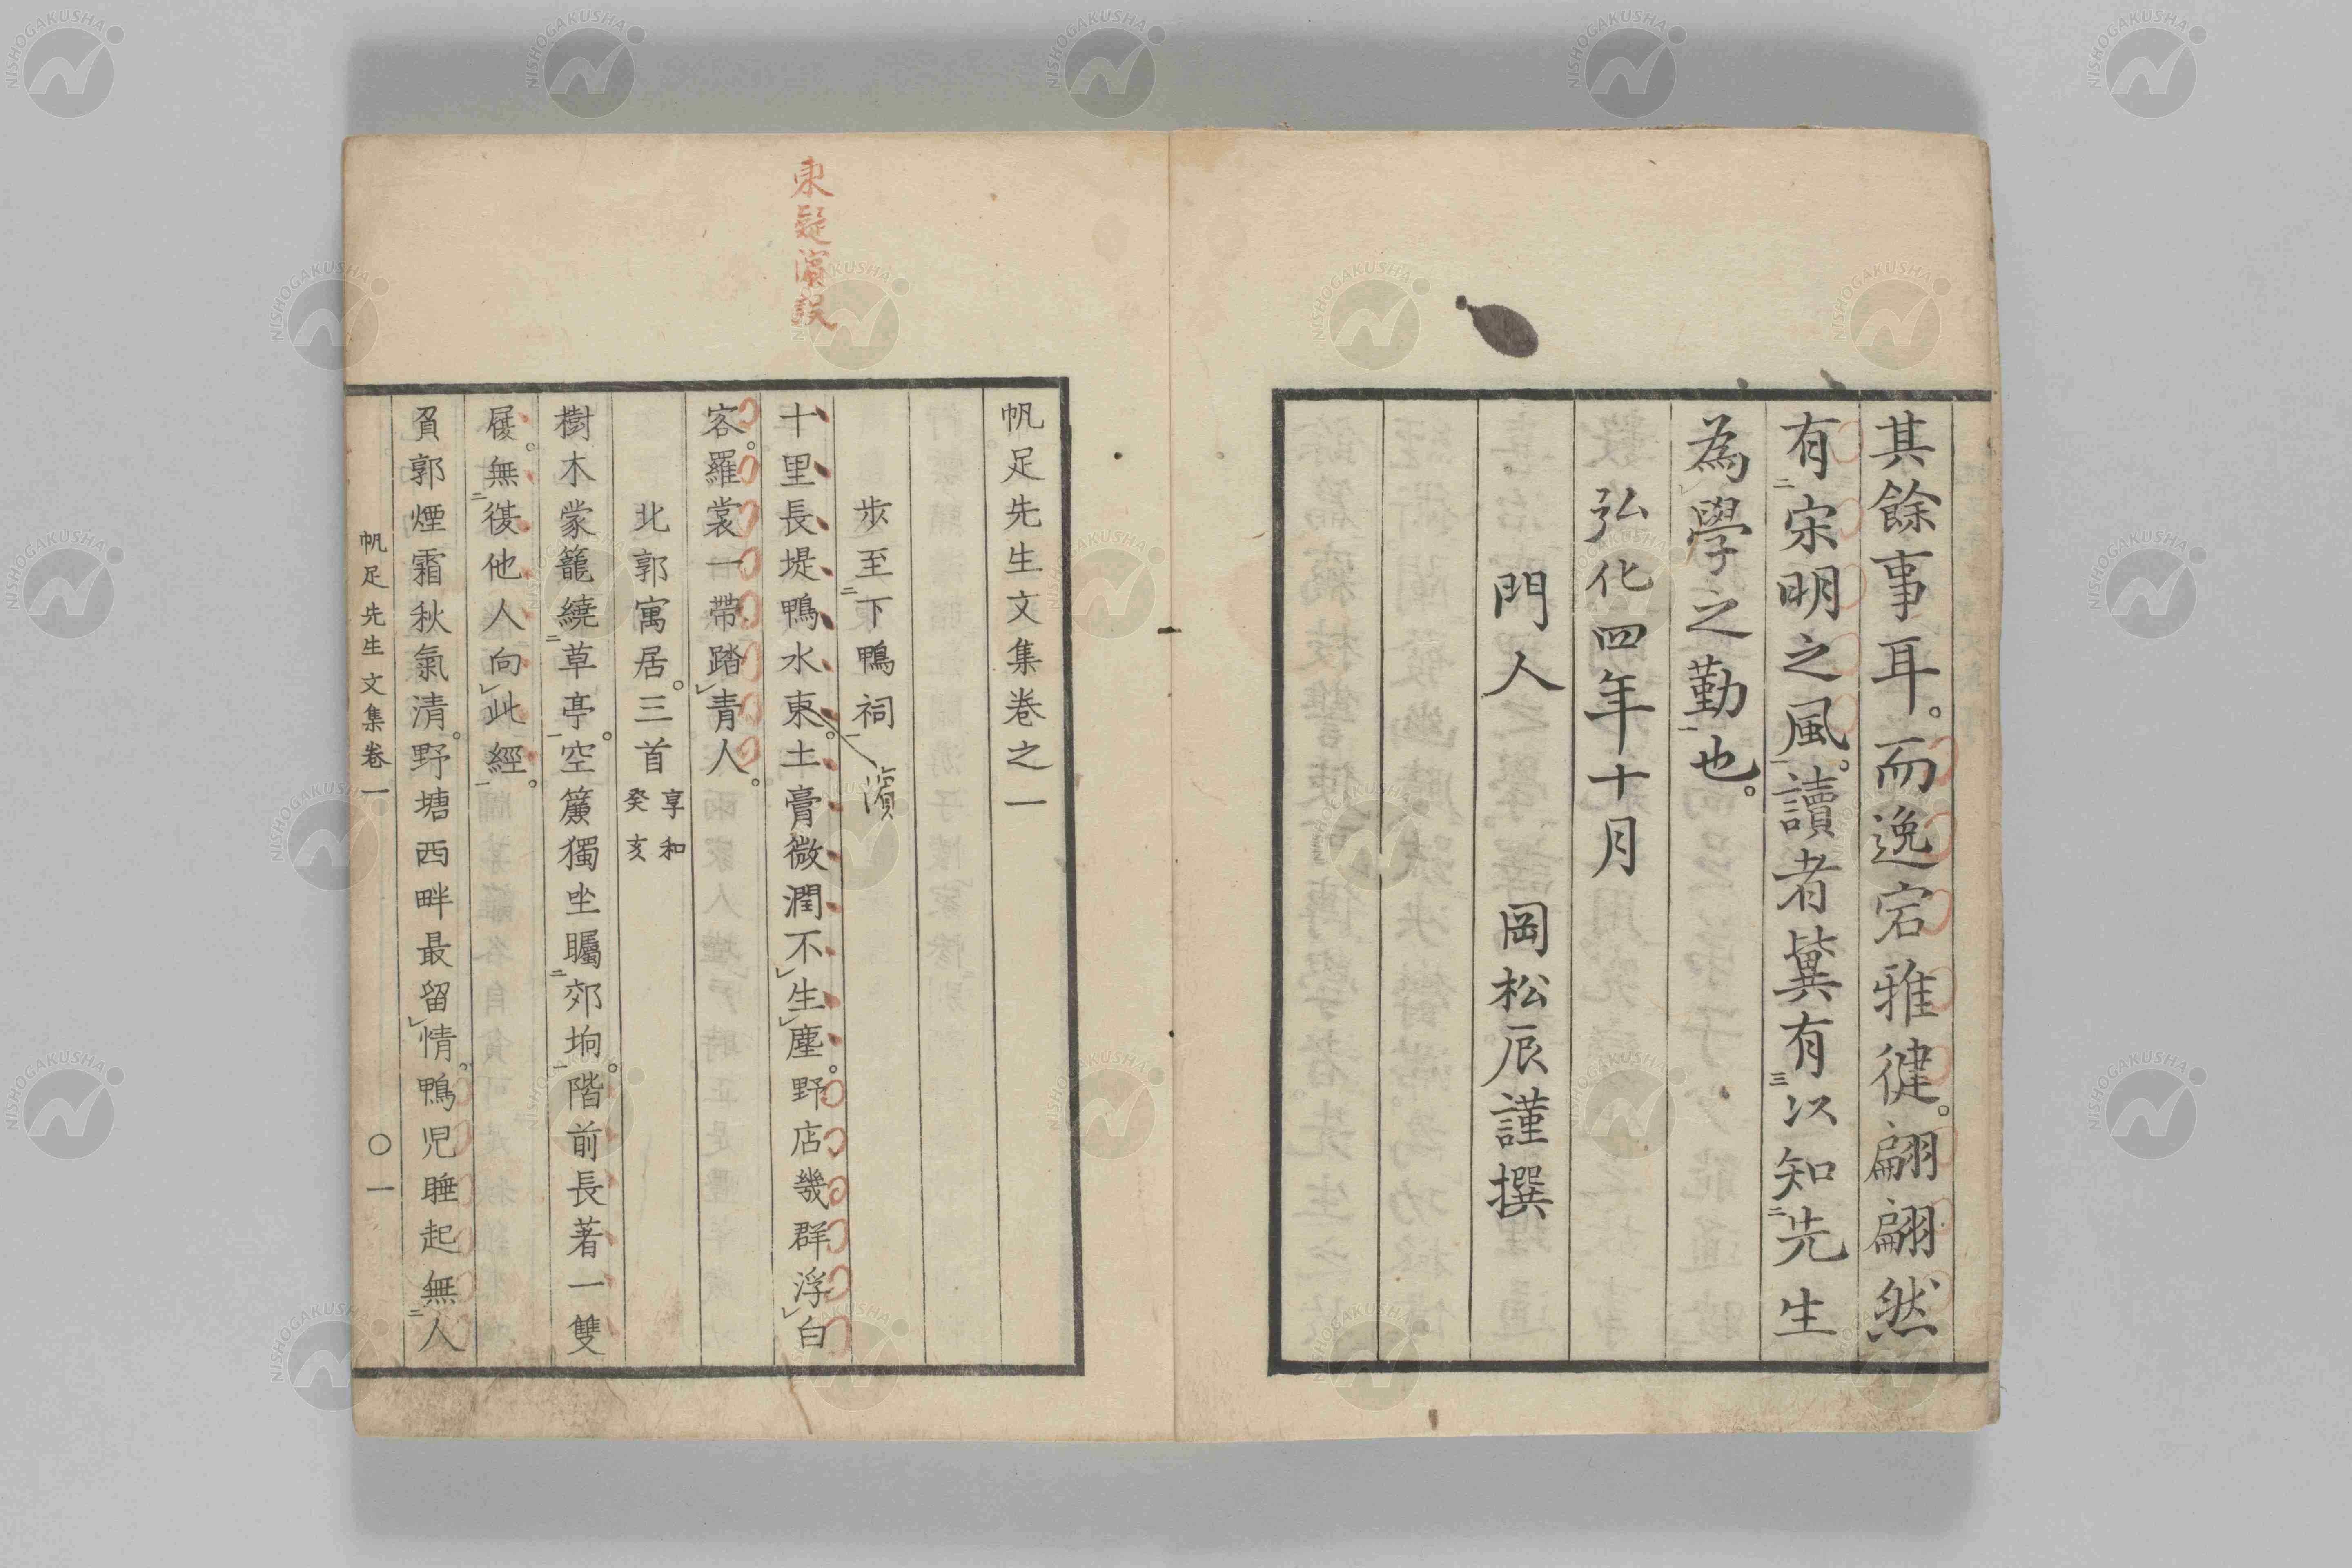 其餘事耳。而逸宕雅健。翩翩然
有宋明之風。讀者冀有以知先生
為學之勤也。
弘化四年十月
門人 岡松辰謹撰
東疑濵誤
帆足先生文集卷之一
步至下鴨祠
濵
十里長堤鴨水東。土膏微潤不生塵。野店幾群浮白
客。羅裳一帶踏青人。
北郭寓居。三首 享和癸亥
樹木蒙籠繞草亭。空簾獨坐矚郊坰。階前長著一雙
屐。無復他人向此經。
負郭煙霜秋氣清。野塘西畔最留情。鴨児睡起無人
帆足先生文集卷一 〇一
NISHOGAKUSHA